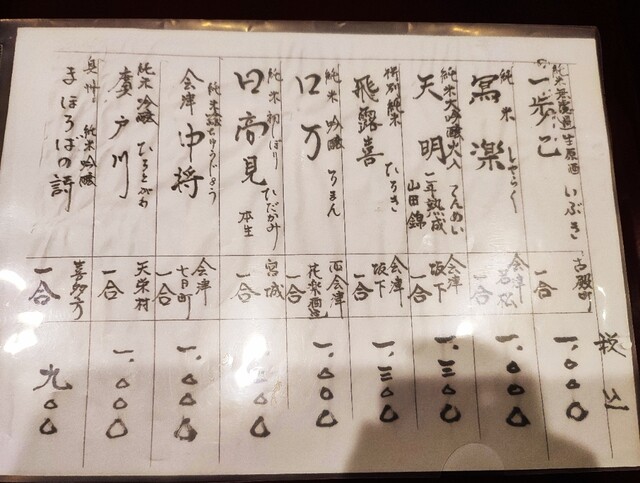 税込
純米
生原酒
一歩己
いぶき
古殿町
一合
一、〇〇〇
純米
寫楽
しゃらく
会津若松
一合
一、〇〇〇
純米大吟醸火入
天明
てんめい
一年熟成
山田錦
会津坂下
一合
一、三〇〇
特別純米
飛露喜
ひろき
会津坂下
一合
一、三〇〇
純米吟醸
ロ万
ろまん
西会津
花泉酒造
一合
一、〇〇〇
純米初しぼり
日高見
ひだかみ
本生
宮城
一合
純米吟醸
会津中将
ちゅうじょう
会津七日町
一合
一、〇〇〇
純米吟醸
廣戸川
ひろとがわ
天栄村
一合
一、〇〇〇
奥州
純米吟醸
まほろばの詩
喜多方
一合
九〇〇